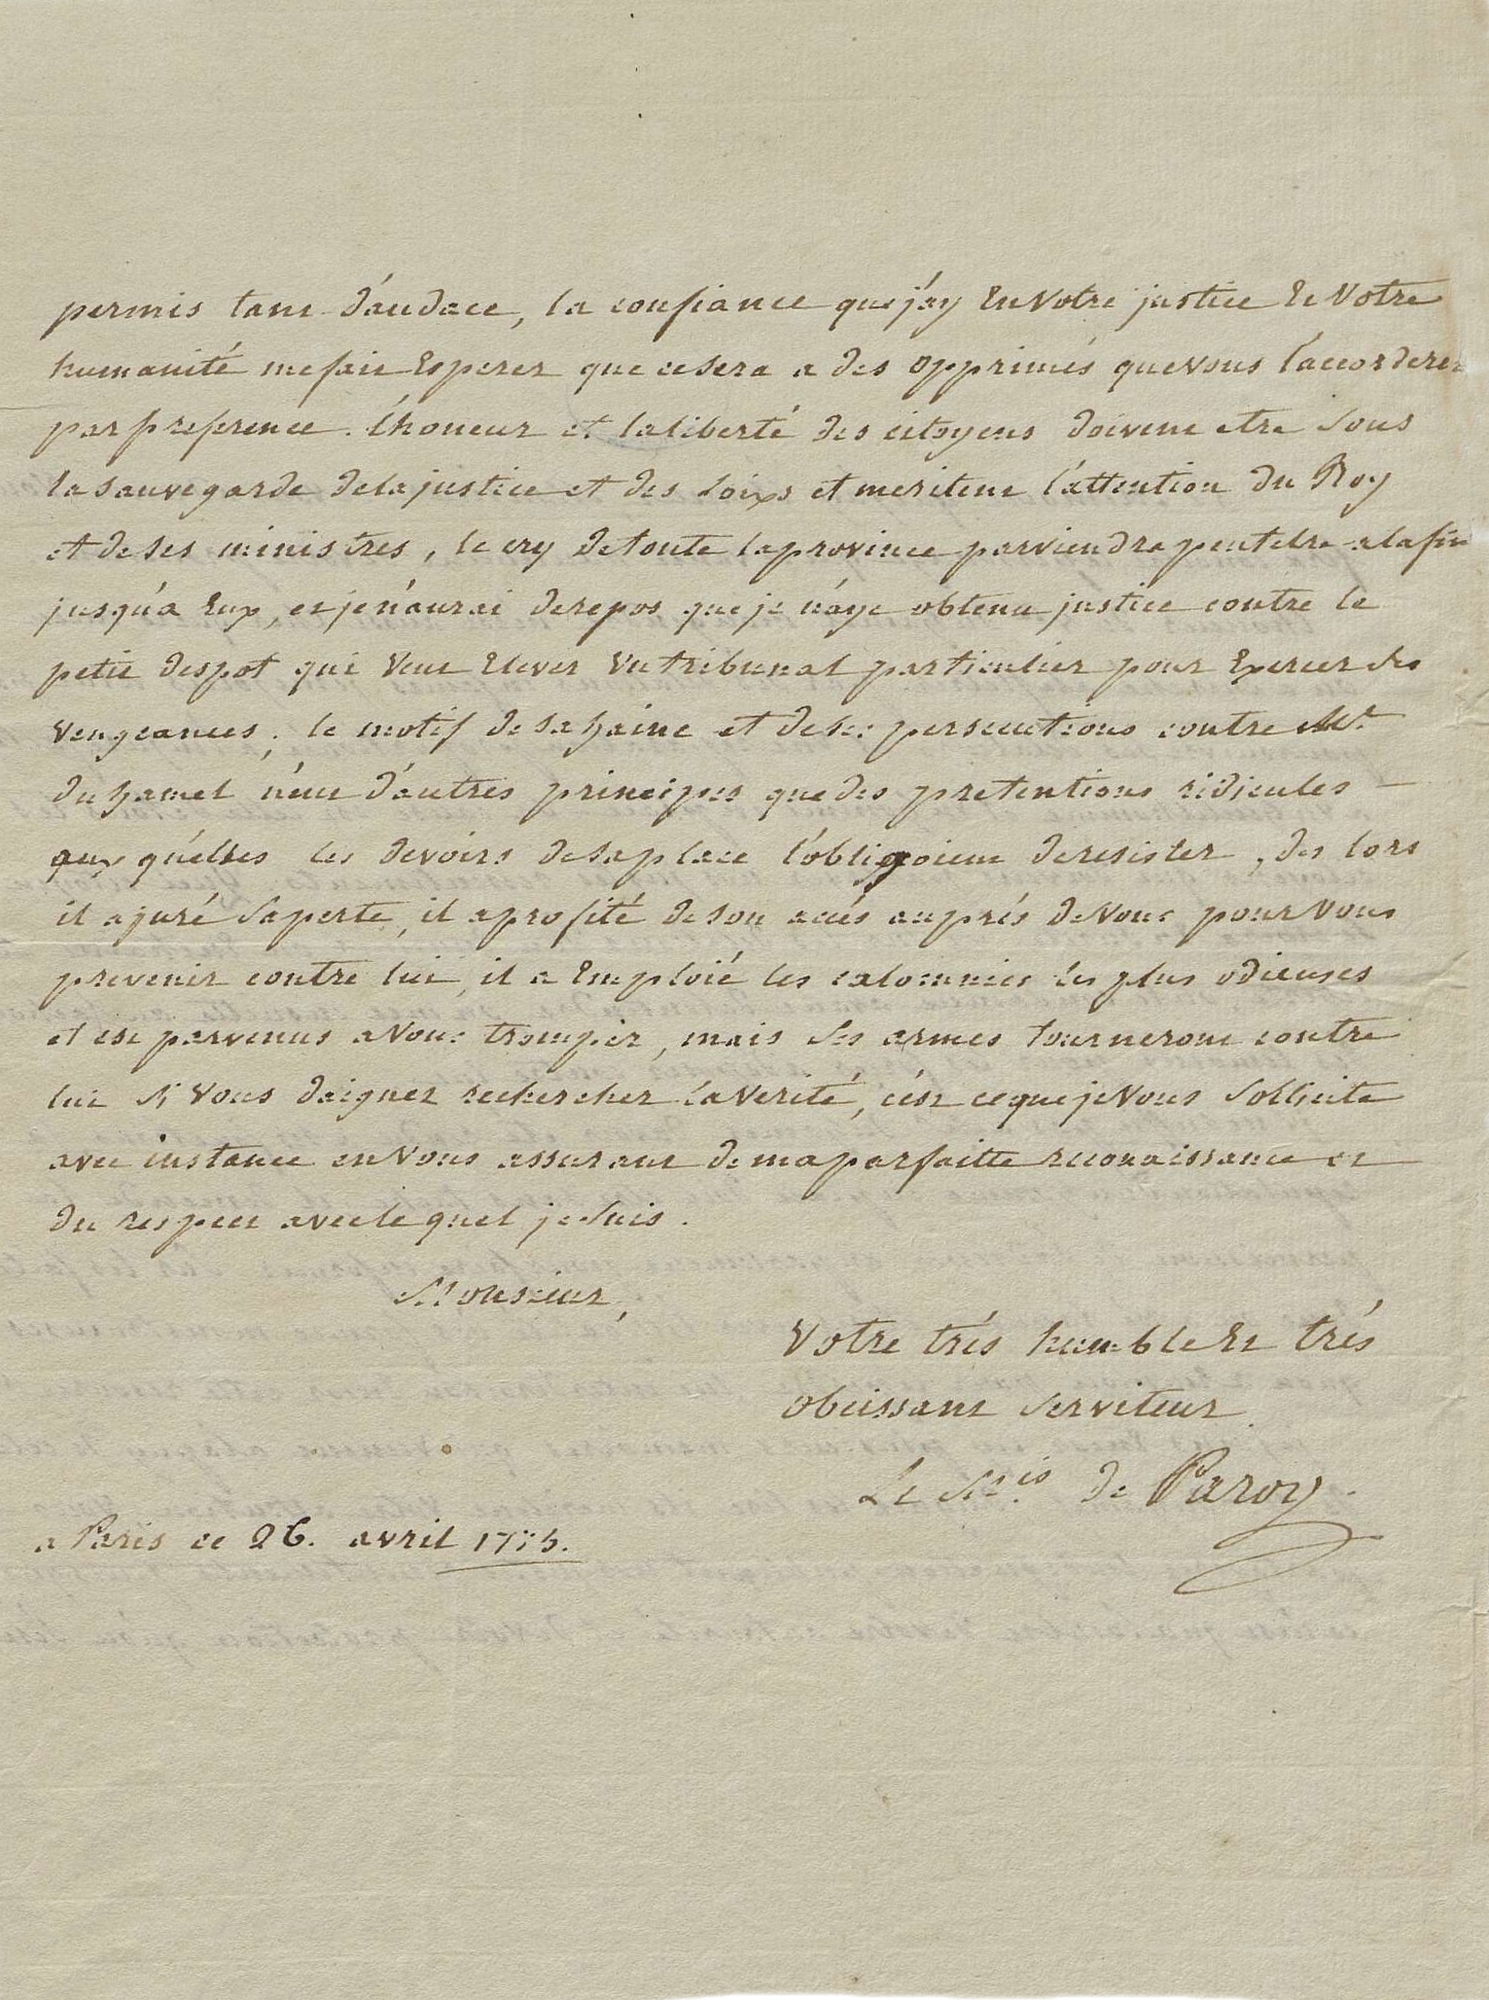 permis tant d'audace, la confiance que j'ay En Votre justice Et Votre
humanité me fait Esperer que ce sera a des opprimés que vous l'accorderez
par preference. l'honeur et la liberté des citoyens doivent etre sous
la sauvegarde de la justice et des loixs et meritent l'attention du Roy
et de ses ministres, le cry de toute la province parviendra peutetre a la fin
jusqu'a Eux, et je n'aurai de repos que je n'aye obtenu justice contre le
petit despot qui veut Elever un tribunal particulier pour Exercer des
vengeances. le motif de sa haine et de ses persecutions contre Mr
du hamel n'eut d'autres principes que des pretentions ridicules –
aux quélles les devoirs de sa place l'obligoient de resister, des lors
il a juré sa perte, il a profité de son accés auprés de Vous pour Vous
prevenir contre lui, il a Emploié les calomnies les plus odieuses
et est parvenus a Vous tromper, mais ses armes tourneront contre
lui si Vous daignez rechercher la Verité, c'est ce que je Vous sollicite
avec instance en Vous assurant de ma parfaitte reconaissance et
du respect avec le quel je suis.
Monsieur,
Votre trés humble Et trés
obeissant serviteur
Le Mis de Paroy.
a Paris ce 26. avril 1775.